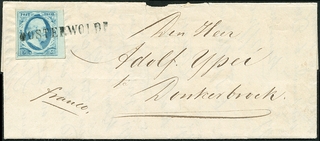 OOSTERWOLDE
Den Heer
Adolf Ypeÿ
te
Donkerbroek.
franco.